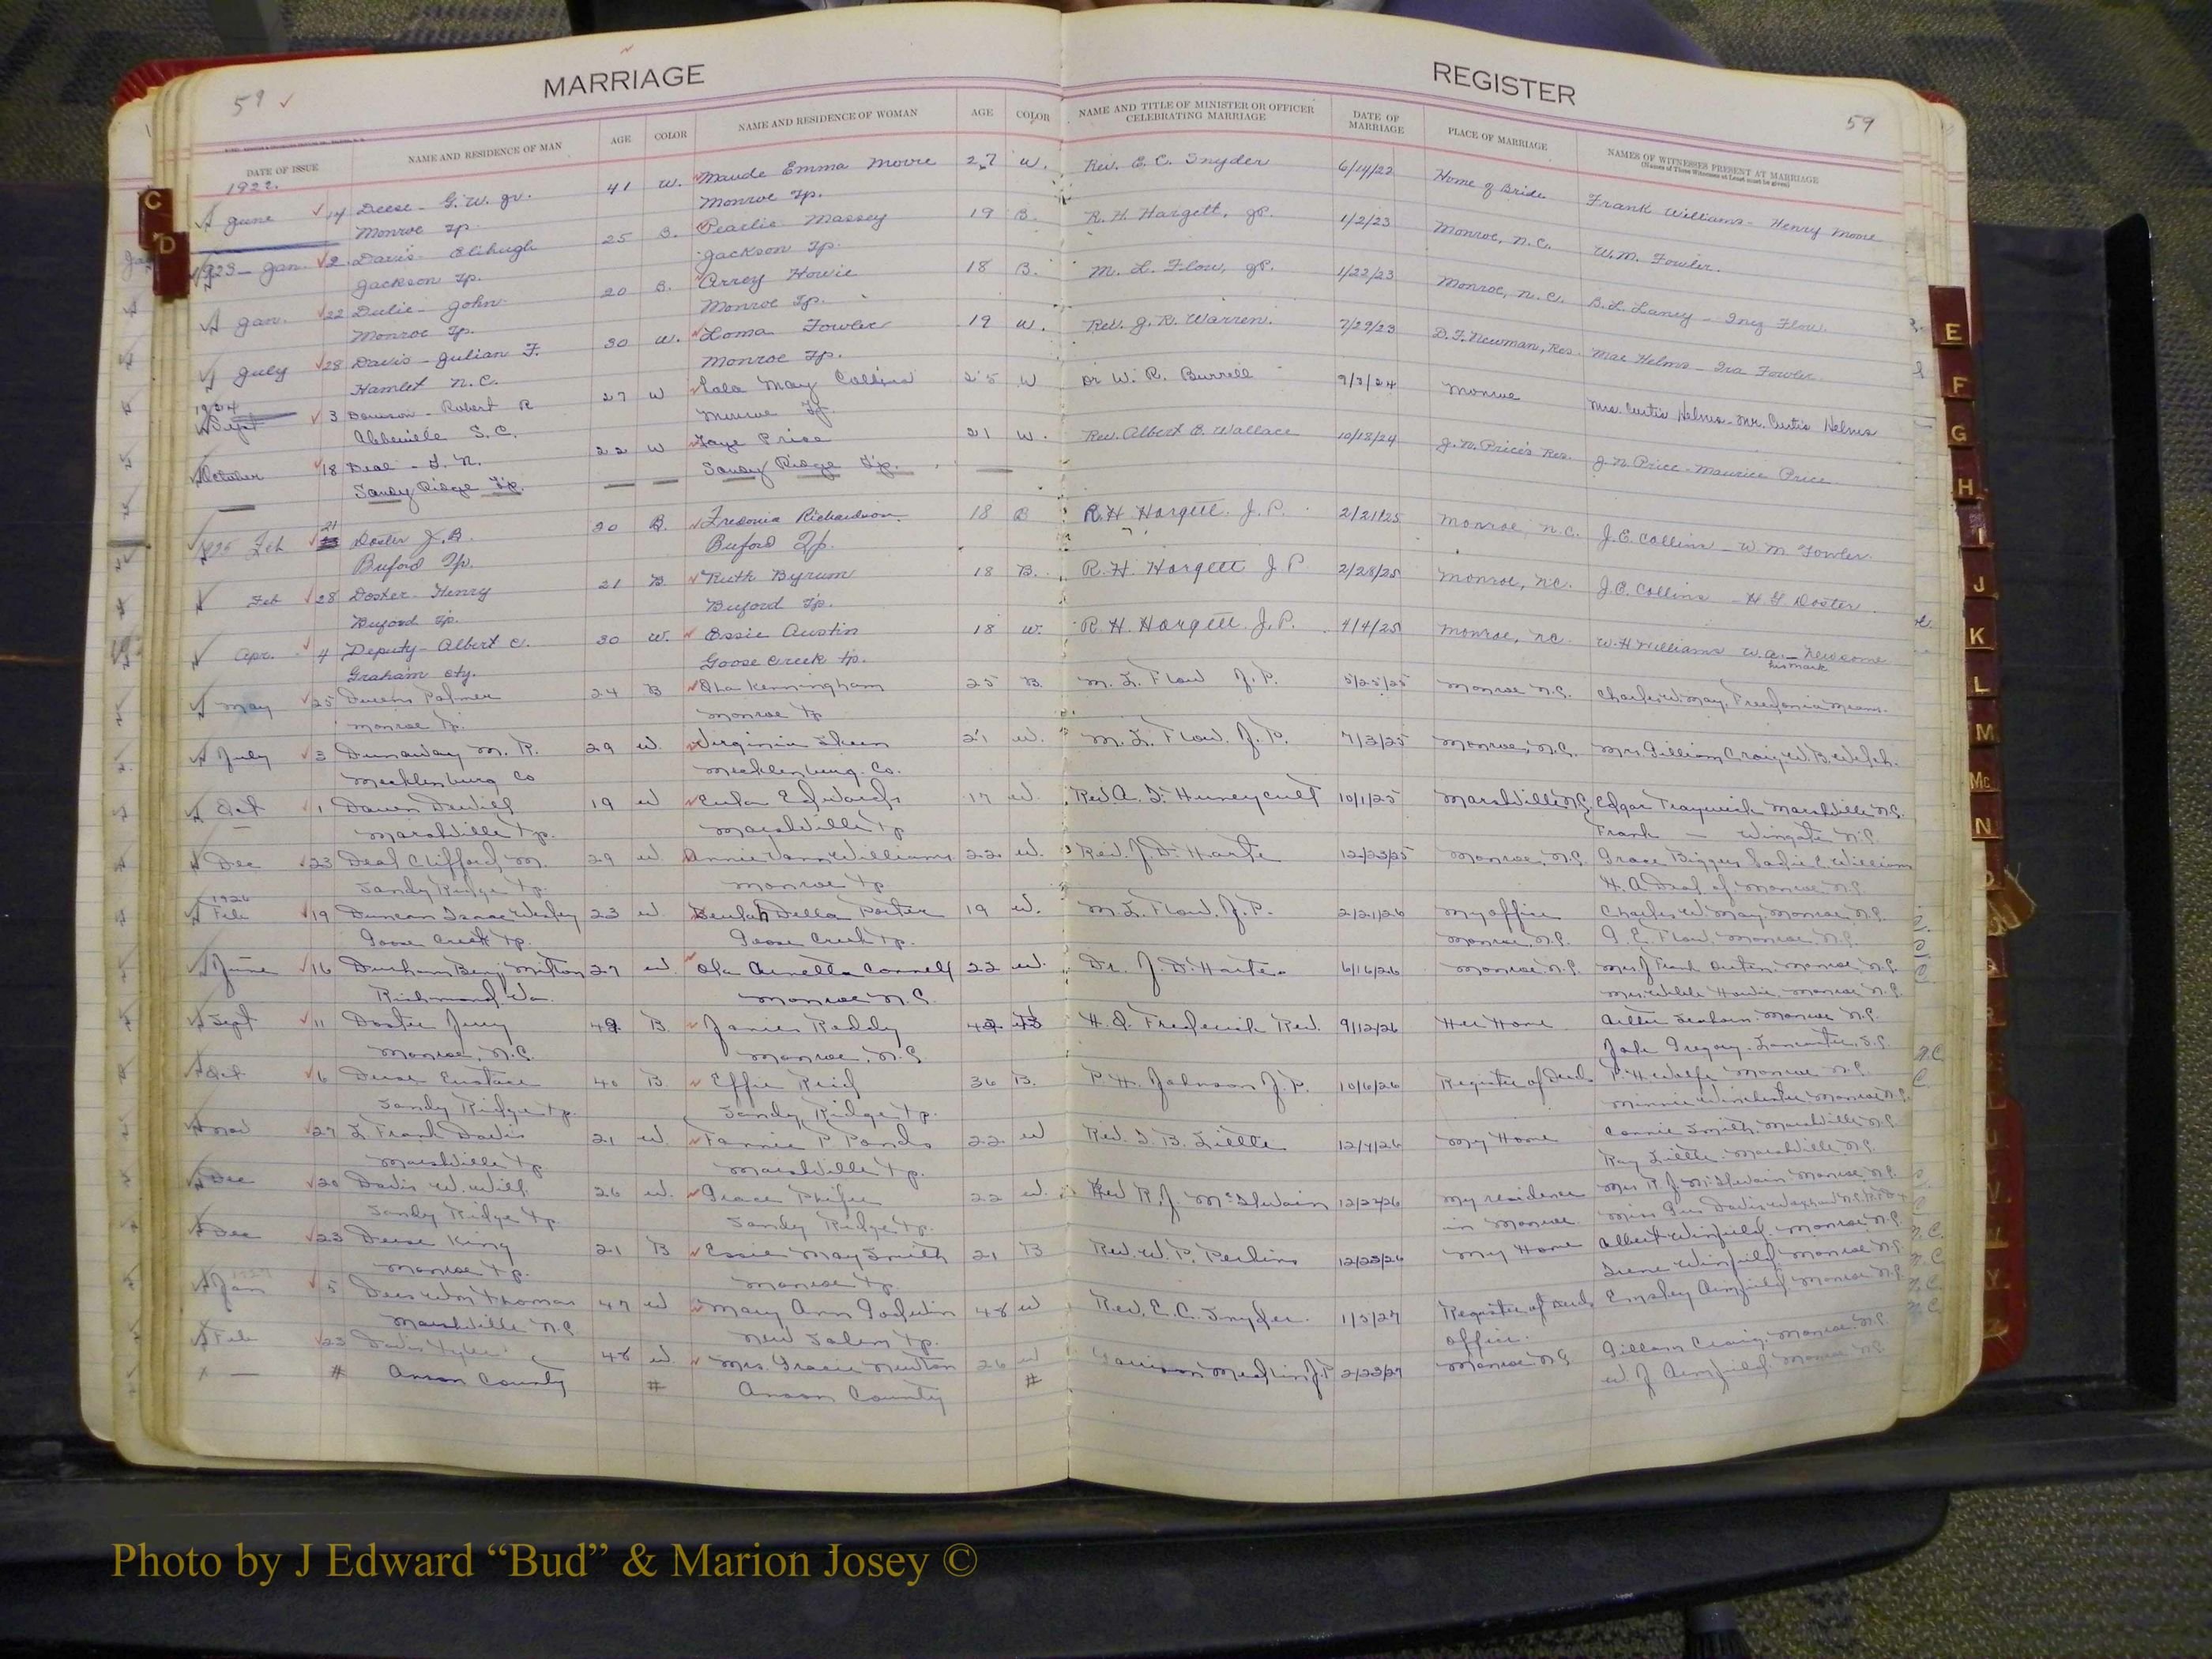 MARRIAGE REGISTER
59 59
DATE OF ISSUE NAME AND RESIDENCE OF MAN AGE COLOR NAME AND RESIDENCE OF WOMAN AGE COLOR NAME AND TITLE OF MINISTER OR OFFICER CELEBRATING MARRIAGE DATE OF MARRIAGE PLACE OF MARRIAGE NAMES OF WITNESSES PRESENT AT MARRIAGE
(Names of Three Witnesses at Least must be given)
1922.
June 14 Deese - G. W. Jr. 41 W. Maude Emma Moore 27 W. Rev. E. C. Snyder 6/14/22 Home of Bride Frank Williams - Henry Moore
Monroe Tp. Monroe Tp.
1923 - Jan. 2 Davis - Elihugh 25 B. Pearlie Massey 19 B. R. H. Hargett, JP. 1/2/23 Monroe, N.C. W. M. Fowler.
Jackson Tp. Jackson Tp.
Jan. 22 John 20 B. Arrey Howie 18 B. M. L. Flow, JP. 1/22/23 Monroe, N.C. B. L. Laney - Inez Flow.
Monroe Tp. Monroe Tp.
July 28 Davis - Julian F. 30 W. Loma Fowler 19 W. Rev. J. R. Warren. 7/29/23 D. F. Newman, Res. Mae Helms - Ira Fowler
Hamlet N.C. Monroe Tp.
1924
Sept 3 Robert R 27 W Lola May Collins 25 W Dr W. R. Burrell 9/3/24 Monroe Mrs. Curtis Helms - Mr. Curtis Helms
Abbeville S.C. Monroe Tp
October 18 Deal - 22 W Faye Price 21 W. Rev. Albert B. Wallace 10/18/24 J. N. Price's Res. J. N. Price - Maurice Price
Sandy Ridge Tp. Sandy Ridge Tp.
1925 Feb 21 Doster J. B. 20 B. Fredonia Richardson 18 B R. H. Hargett. J. P. 2/21/25 Monroe, N.C. J. E. Collins - W. M. Fowler
Buford Tp. Buford Tp.
Feb 28 Doster - Henry 21 B. Ruth Byrum 18 B. R. H. Hargett J. P 2/28/25 Monroe, N.C. J. E. Collins - H. G. Doster
Buford Tp. Buford Tp.
Apr. 4 Deputy - Albert C. 30 W. Essie Austin 18 W. R. H. Hargett. J. P. 4/4/25 Monroe, N.C. W. H. Williams W. A. Newsome
his mark
Graham Cty. Goose Creek Tp.
May 25 Palmer 24 B Kenningham 25 B. M. L. Flow J. P. 5/25/25 Monroe N.C. Charles W. May, Freedonia Means.
Monroe Tp. Monroe Tp
July 3 Dunaway M. R. 29 W. Virginia 21 W. M. L. Flow. J. P. 7/3/25 Monroe, N.C. Mrs. Gilliam Craig, W. B. Welsh.
Mecklenburg Co Mecklenburg. Co.
Oct 1 19 W Eula Edwards 17 W. Rev. A. L. Huneycutt 10/1/25 Marshville N.C. Edgar Traywick Marshville N.C.
Marshville Tp. Marshville Tp Frank — Wingate N.C.
Dec 23 Deal Clifford M. 29 W Annie Vann Williams 22 W. Rev. J. D. Harte 12/23/25 Monroe, N.C. Grace Bigger Sadie E. William
Sandy Ridge Tp. Monroe Tp H. A. Deal of Monroe N.C.
1926
Feb 19 Duncan Isaac Wesley 23 W Beulah Della Porter 19 W. M. L. Flow. J. P. 2/21/26 My office Charles W. May, Monroe, N.C.
Goose Creek Tp. Goose Creek Tp. Monroe, N.C. I. E. Flow, Monroe, N.C.
June 16 Durham Benj Milton 27 W. Ola Arnetta Connell 22 W. Dr. J. D. Harte. 6/16/26 Monroe, N.C. Mrs. J. Frank Monroe, N.C.
Richmond Va. Monroe N.C. Howie, Monroe N.C.
Sept 11 Doster Jerry 49 B. Janie Reddy B H. Q. Frederick Rev. 9/12/26 Her Home Monroe N.C.
Monroe, N.C. Monroe, N.C. Jake Gregory. Lancaster, S.C.
Oct 6 Deese Eustace 40 B. Effie Reid 36 B. P. H. Johnson J. P. 10/6/26 Register of Deeds P. H. Wolfe Monroe N.C.
Sandy Ridge Tp. Sandy Ridge Tp. Minnie Winchester, Monroe N.C.
Nov 27 L. Frank Davis 21 W. Fannie P Ponds 22 W Rev. J. B. Little 12/4/26 My Home Connie Smith. Marshville N.C.
Marshville Tp. Marshville Tp. Ray Little. Marshville N.C.
Dec 20 Davis W. Will. 26 W. Grace Phifer 22 W. Rev R. J. McIlwain 12/22/26 My residence Mrs R. J. McIlwain Monroe, N.C.
Sandy Ridge Tp. Sandy Ridge Tp. in Monroe. Miss Davis, Waxhaw N.C.
Dec 23 Deese King 21 B Essie May Smith 21 B Rev. W. P. Perkins 12/23/26 My Home Albert Winfield. Monroe N.C.
Monroe Tp. Monroe Tp. Irene Winfield Monroe N.C.
1927
Jan 5 Dees Wm Thomas 47 W Mary Ann Godwin 48 W Rev. E. C. Snyder. 1/5/27 Register of Deeds Emsley Armfield Monroe N.C.
Marshville N.C. New Salem Tp. office.
Feb 23 Davis Tyler 48 W. Mrs. Gracie Newton 26 W J. P. 2/23/27 Monroe N.C. Gilliam Craig, Monroe, N.C.
# Anson County # Anson County # W. J. Armfield. Monroe N.C.
C
D
E
F
G
H
I
J
K
L
M
Mc
N
Photo by J Edward “Bud” & Marion Josey ©